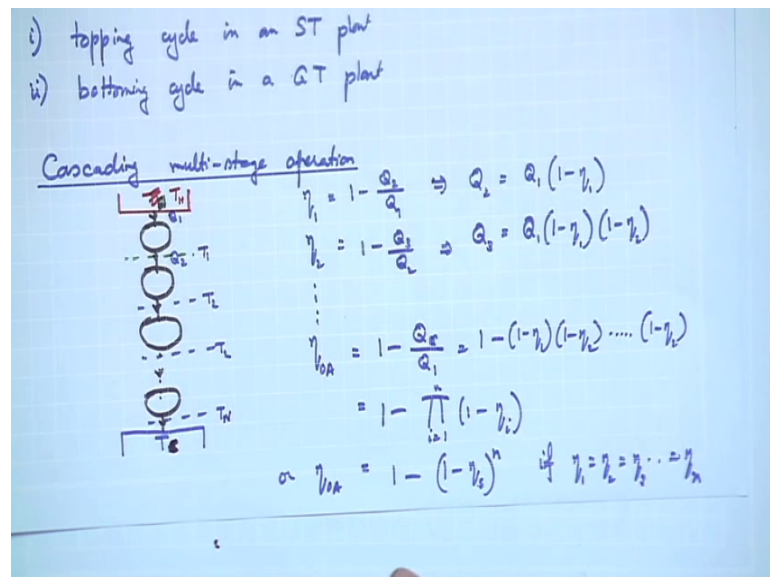 i) topping cycle in an ST plant
ii) bottoming cycle in a GT plant
Cascading multi-stage operation
T_H
Q_1
η_1 = 1 - Q_2/Q_1 ⇒ Q_2 = Q_1(1-η_1)
Q_2 T_1
η_2 = 1 - Q_3/Q_2 ⇒ Q_3 = Q_1(1-η_1)(1-η_2)
T_2
η_OA = 1 - Q_/Q_1 = 1-(1-η_1)(1-η_2).....(1-η_)
T_
= 1 - ∏_{i=1}^{n} (1-η_i)
T_N
T
or η_OA = 1 - (1-η_s)^n if η_1 = η_2 = η_3 .. = η_n